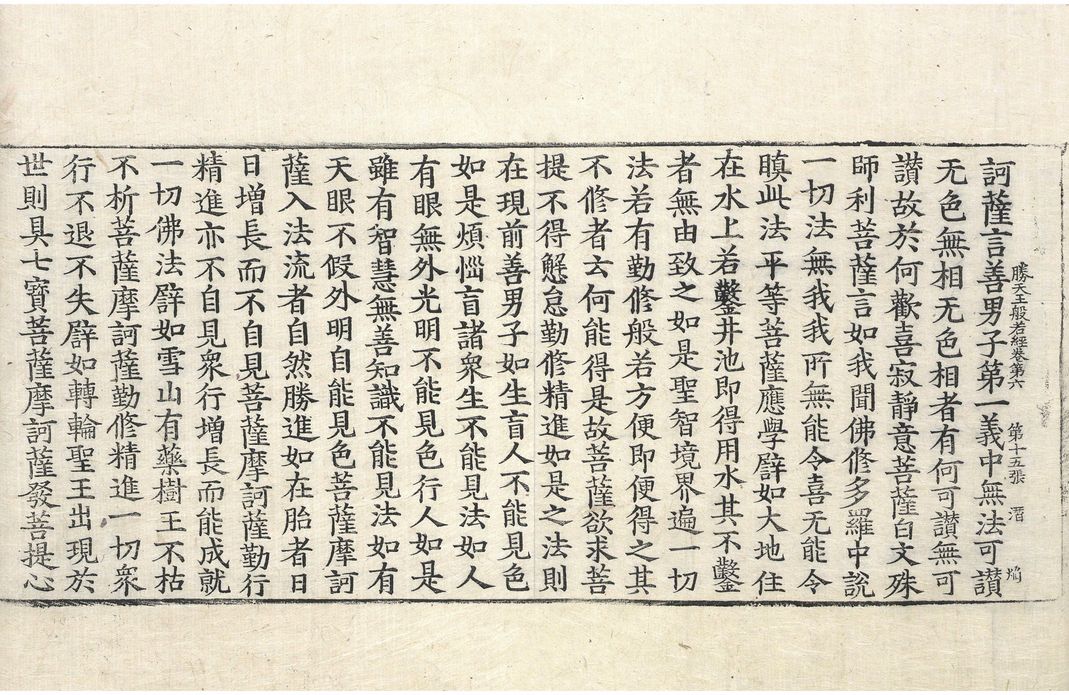 勝天王般若經卷第六　第十五張　潛　焰
訶薩言善男子第一義中無法可讃
无色無相无色相者有何可讃無可
讃故於何歡喜寂靜意菩薩白文殊
師利菩薩言如我聞佛修多羅中說
一切法無我我所無能令喜无能令
瞋此法平等菩薩應學譬如大地住
在水上若鑿井池即得用水其不鑿
者無由致之如是聖智境界遍一切
法若有勤修般若方便即便得之其
不修者云何能得是故菩薩欲求菩
提不得懈怠勤修精進如是之法則
在現前善男子如生盲人不能見色
如是煩惱盲諸衆生不能見法如人
有眼無外光明不能見色行人如是
雖有智慧無善知識不能見法如有
天眼不假外明自能見色菩薩摩訶
薩入法流者自然勝進如在胎者日
日增長而不自見菩薩摩訶薩勤行
精進亦不自見衆行增長而能成就
一切佛法譬如雪山有藥樹王不枯
不析菩薩摩訶薩勤修精進一切衆
行不退不失譬如轉輪聖王出現於
世則具七寶菩薩摩訶薩發菩提心